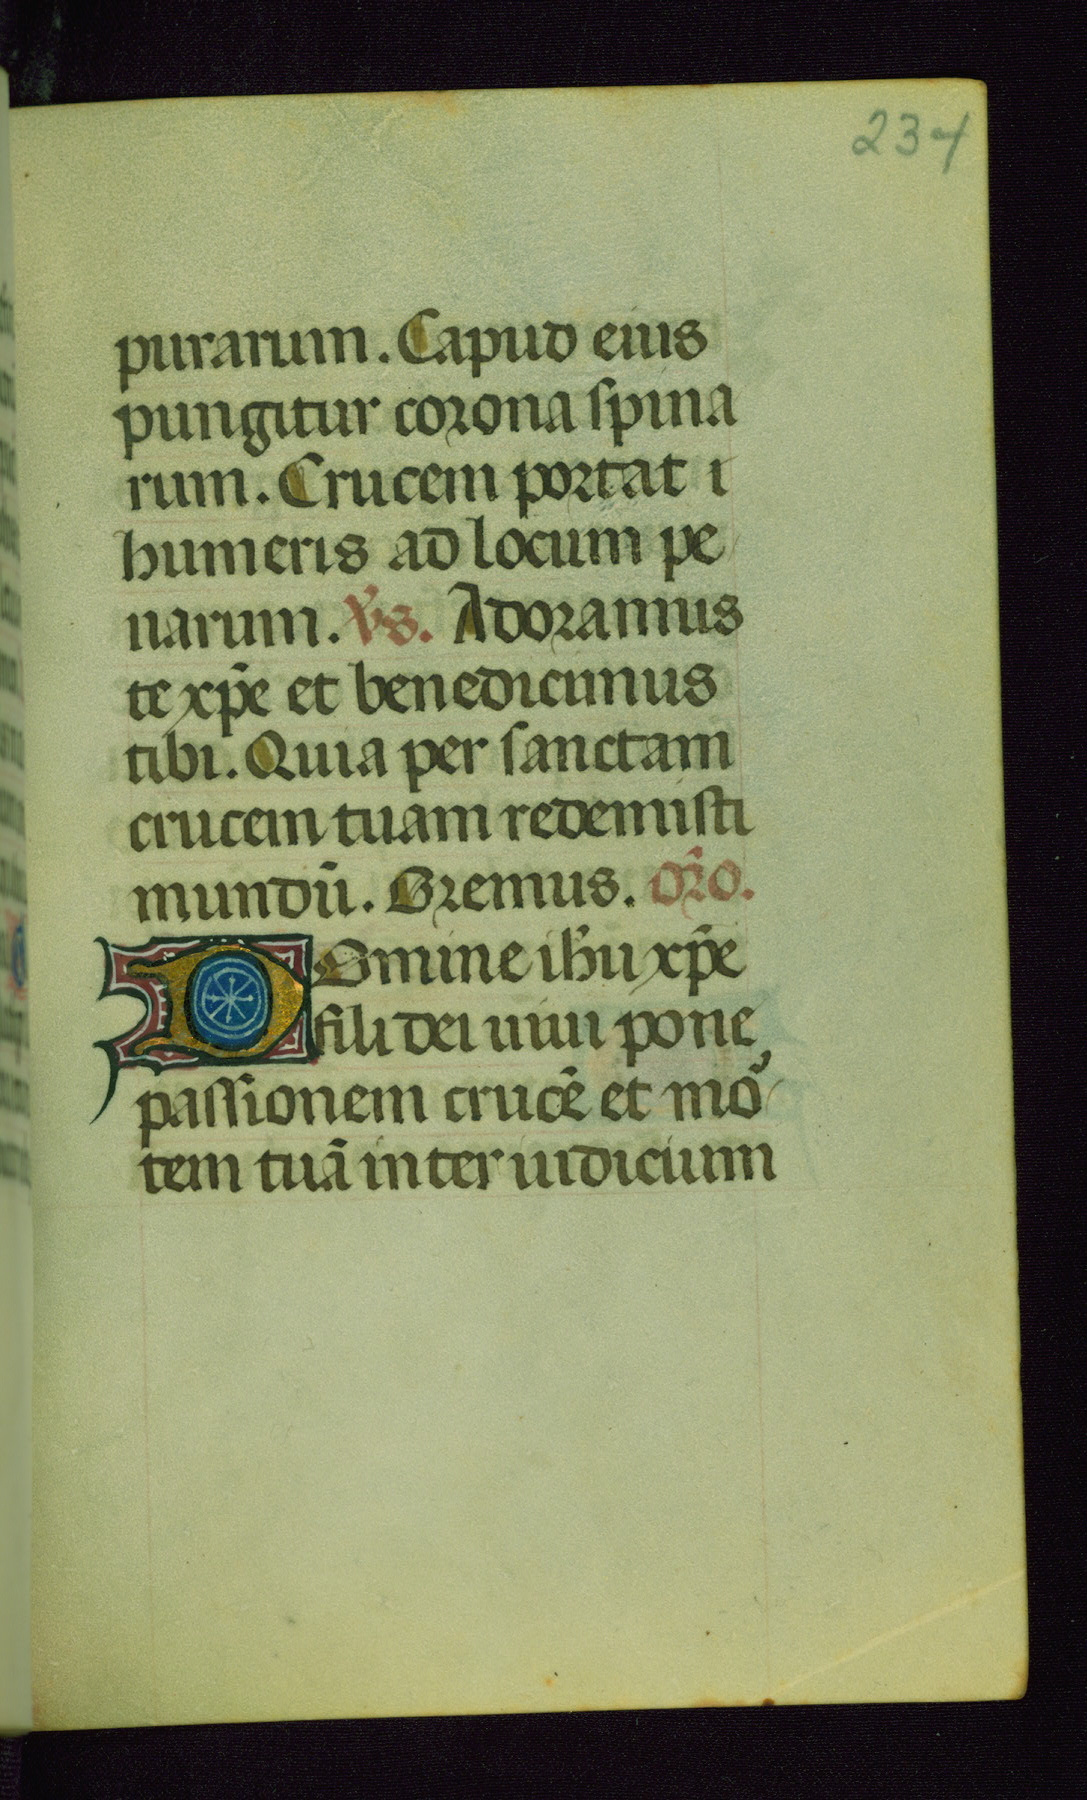 234
purarum. Capud eius
pungitur corona spina
rum. Crucem portat i
humeris ad locum pe
narum. v̾s. Adoramus
te xp̄e et benedicimus
tibi. Quia per sanctam
crucem tuam redemisti
mundū. Oremus. Or̄o.
Domine ih̄u xp̄e
fili dei uiui pone
passionem crucē et mo᷒
tem tuā inter iudicium